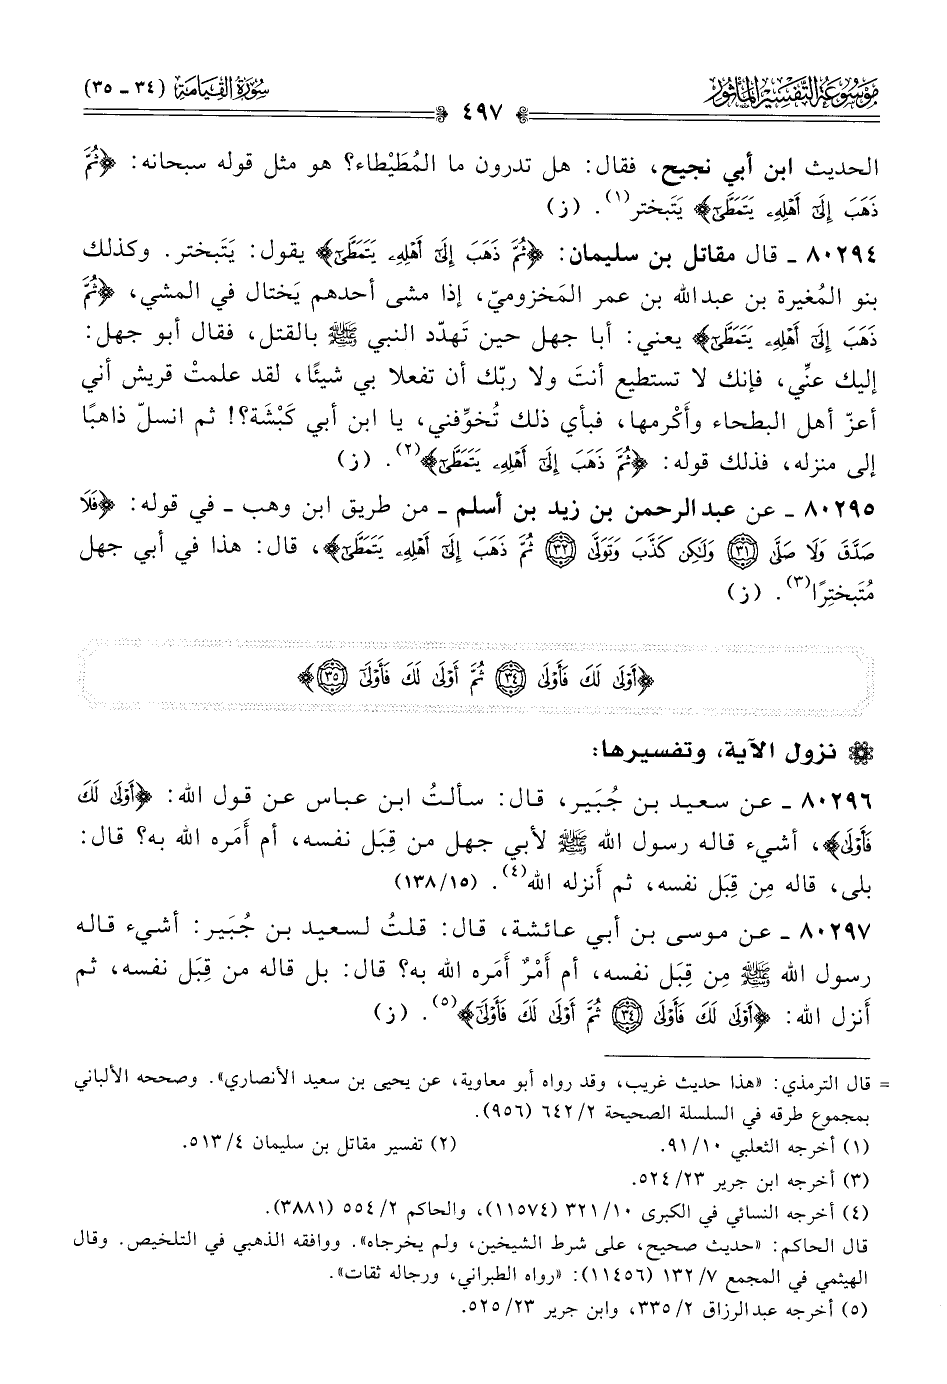 مَوْسُوعَة التَّفْسِير المَأْثُور
سُورَةُ القِيَامَة (٣٤ - ٣٥)
٤٩٧
الحديث ابن أبي نجيح، فقال: هل تدرون ما المُطَيْطاء؟ هو مثل قوله سبحانه: ﴿ثُمَّ
ذَهَبَ إِلَىٰٓ أَهْلِهِۦ يَتَمَطَّىٰٓ﴾ يَتَبختر(١). (ز)
٨٠٢٩٤ ـ قال مقاتل بن سليمان: ﴿ثُمَّ ذَهَبَ إِلَىٰٓ أَهْلِهِۦ يَتَمَطَّىٰٓ﴾ يقول: يَتَبختر. وكذلك
بنو المُغيرة بن عبدالله بن عمر المَخزوميّ، إذا مشى أحدهم يَختال في المشي، ﴿ثُمَّ
ذَهَبَ إِلَىٰٓ أَهْلِهِۦ يَتَمَطَّىٰٓ﴾ يعني: أبا جهل حين تَهدّد النبي ﷺ بالقتل، فقال أبو جهل:
إليك عنِّي، فإنك لا تستطيع أنتَ ولا ربّك أن تفعلا بي شيئًا، لقد علمتْ قريش أني
أعزّ أهل البطحاء وأَكْرمها، فبأي ذلك تُخوِّفني، يا ابن أبي كَبْشَة؟! ثم انسلّ ذاهبًا
إلى منزله، فذلك قوله: ﴿ثُمَّ ذَهَبَ إِلَىٰٓ أَهْلِهِۦ يَتَمَطَّىٰٓ﴾(٢). (ز)
٨٠٢٩٥ ـ عن عبدالرحمن بن زيد بن أسلم ـ من طريق ابن وهب ـ في قوله: ﴿فَلَا
صَدَّقَ وَلَا صَلَّىٰ ٣١ وَلَـٰكِن كَذَّبَ وَتَوَلَّىٰ ٣٢ ثُمَّ ذَهَبَ إِلَىٰٓ أَهْلِهِۦ يَتَمَطَّىٰٓ﴾، قال: هذا في أبي جهل
مُتَبخترًا(٣). (ز)
﴿أَوْلَىٰ لَكَ فَأَوْلَىٰ ٣٤ ثُمَّ أَوْلَىٰ لَكَ فَأَوْلَىٰٓ ٣٥﴾
نزول الآية، وتفسيرها:
٨٠٢٩٦ ـ عن سعيد بن جُبَير، قال: سألتُ ابن عباس عن قول الله: ﴿أَوْلَىٰ لَكَ
فَأَوْلَىٰ﴾، أشيء قاله رسول الله ﷺ لأبي جهل من قِبَل نفسه، أم أَمَره الله به؟ قال:
بلى، قاله مِن قِبَل نفسه، ثم أَنزله الله(٤). (١٣٨/١٥)
٨٠٢٩٧ ـ عن موسى بن أبي عائشة، قال: قلتُ لسعيد بن جُبَير: أشيء قاله
رسول الله ﷺ مِن قِبَل نفسه، أم أَمْرٌ أَمَره الله به؟ قال: بل قاله من قِبَل نفسه، ثم
أَنزل الله: ﴿أَوْلَىٰ لَكَ فَأَوْلَىٰ ٣٤ ثُمَّ أَوْلَىٰ لَكَ فَأَوْلَىٰٓ﴾(٥). (ز)
= قال الترمذي: «هذا حديث غريب، وقد رواه أبو معاوية، عن يحيى بن سعيد الأنصاري». وصححه الألباني
بمجموع طرقه في السلسلة الصحيحة ٦٤٢/٢ (٩٥٦).
(١) أخرجه الثعلبي ٩١/١٠.
(٢) تفسير مقاتل بن سليمان ٥١٣/٤.
(٣) أخرجه ابن جرير ٥٢٤/٢٣.
(٤) أخرجه النسائي في الكبرى ٣٢١/١٠ (١١٥٧٤)، والحاكم ٥٥٤/٢ (٣٨٨١).
قال الحاكم: «حديث صحيح، على شرط الشيخين، ولم يخرجاه». ووافقه الذهبي في التلخيص. وقال
الهيثمي في المجمع ١٣٢/٧ (١١٤٥٦): «رواه الطبراني، ورجاله ثقات».
(٥) أخرجه عبدالرزاق ٣٣٥/٢، وابن جرير ٥٢٥/٢٣.